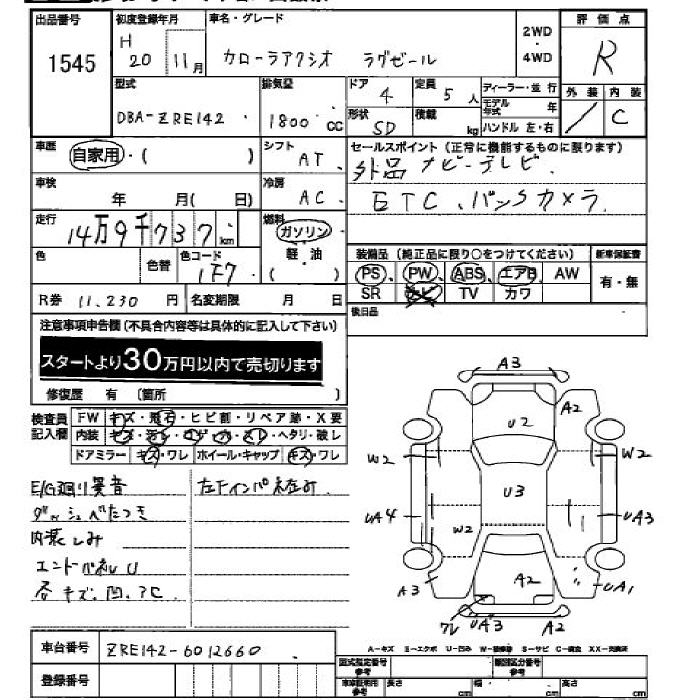 出品番号 初度登録年月 車名・グレード 2WD・4WD 評価点
1545 H 20 11月 カローラアクシオ ラグゼール R
型式 排気量 ドア 定員 ディーラー・並行 外装 内装
DBA-ZRE142 1800cc 4 5人 モデル年式 年 / C
形状 積載 ハンドル 左・右
SD kg
車歴 自家用・( ) シフト AT セールスポイント(正常に機能するものに限ります)
外品ナビ-テレビ
車検 年 月( 日) 冷房 AC ETC、バックカメラ
走行 14万9千737km 燃料 ガソリン
軽・油
( )
色 色替 色コード 1F7
装備品(純正品に限り○をつけてください) 新車保証書
PS PW ABS エアB AW 有・無
SR ナビ TV カワ
R券 11,230円 名変期限 月 日 後日品
注意事項申告欄(不具合内容等は具体的に記入して下さい)
スタートより30万円以内で売切ります
修復歴 有 (箇所 )
検査員記入欄 FW キズ・飛石・ヒビ割・リペア跡・X要
内装 キズ・汚レ・コゲ・穴・スレ・ヘタリ・破レ
ドアミラー キズ・ワレ ホイール・キャップ キズ・ワレ
E/G廻り異音 左Fインパネ在み
ダッシュべたつき
内装しみ
エンドパネルU
各キズ、凹、アC
A3
A2
U2
W2 W2
U3
UA4 UA3
W2
A3 A2 UA1
ワレ UA3 A2
車台番号 ZRE142-6012660
A-キズ E-エクボ U-凹み W-補修跡 S-サビ C-腐食 XX-交換済
登録番号
型式指定番号 参考 類別区分番号 参考
車庫証明用 参考 長さ cm 幅 cm 高さ cm